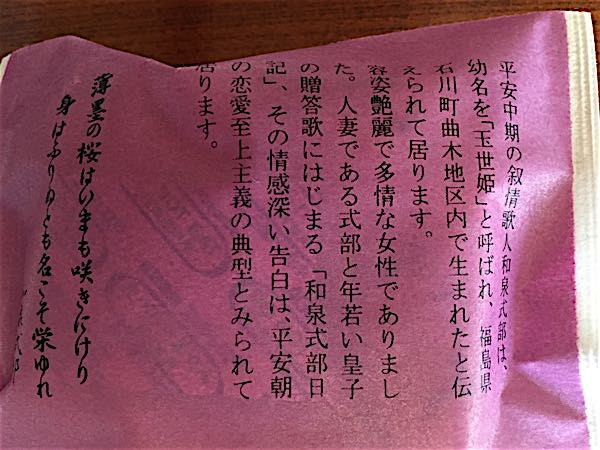 平安中期の叙情歌人和泉式部は、
幼名を「玉世姫」と呼ばれ、福島県
石川町曲木地区内で生まれたと伝
えられて居ります。
容姿艶麗で多情な女性でありまし
た。人妻である式部と年若い皇子
の贈答歌にはじまる「和泉式部日
記」、その情感深い告白は、平安朝
の恋愛至上主義の典型とみられて
居ります。
薄墨の桜はいまも咲きにけり
身はふりゆとも名こそ栄ゆれ
和泉式部